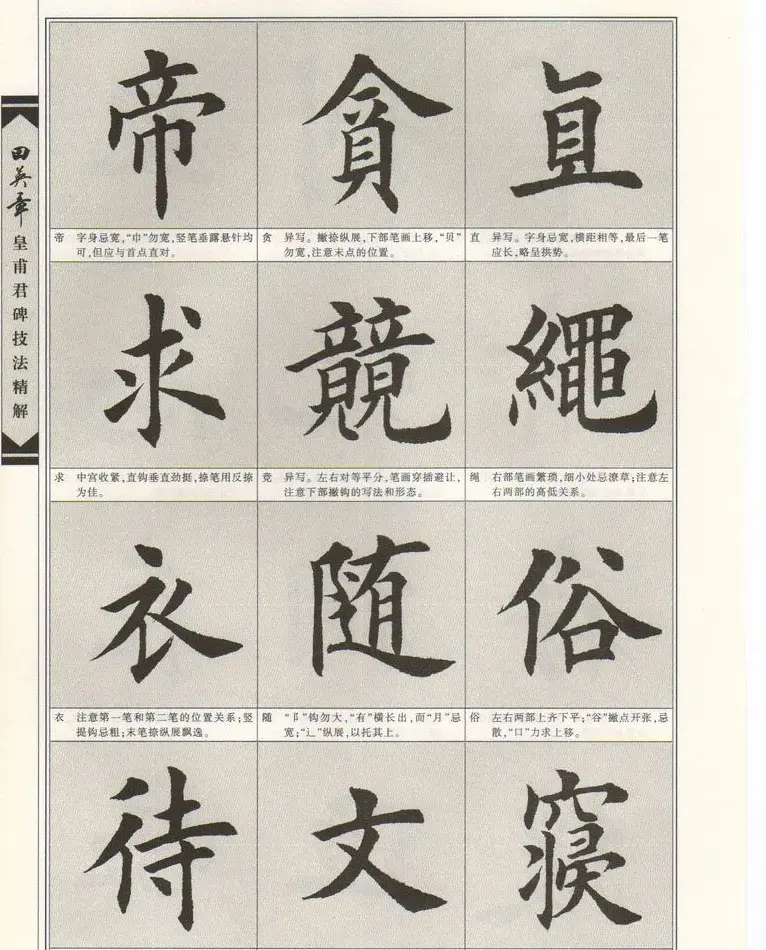 田英章
皇甫君碑技法精解
帝 貪 直
帝 字身忌宽,“巾”勿宽,竖笔垂露悬针均
可,但应与首点直对。
贪 异写。撇捺纵展,下部笔画上移,“贝”
勿宽,注意末点的位置。
直 异写。字身忌宽,横距相等,最后一笔
应长,略呈拱势。
求 競 繩
求 中宫收紧,直钩垂直劲挺,捺笔用反捺
为佳。
竞 异写。左右对等平分,笔画穿插避让,
注意下部撇钩的写法和形态。
绳 右部笔画繁琐,细小处忌潦草;注意左
右两部的高低关系。
衣 随 俗
衣 注意第一笔和第二笔的位置关系;竖
提钩忌粗;末笔捺纵展飘逸。
随 “阝”钩勿大,“有”横长出,而“月”忌
宽;“辶”纵展,以托其上。
俗 左右两部上齐下平;“谷”撇点开张,忌
散,“口”力求上移。
待 文 寝